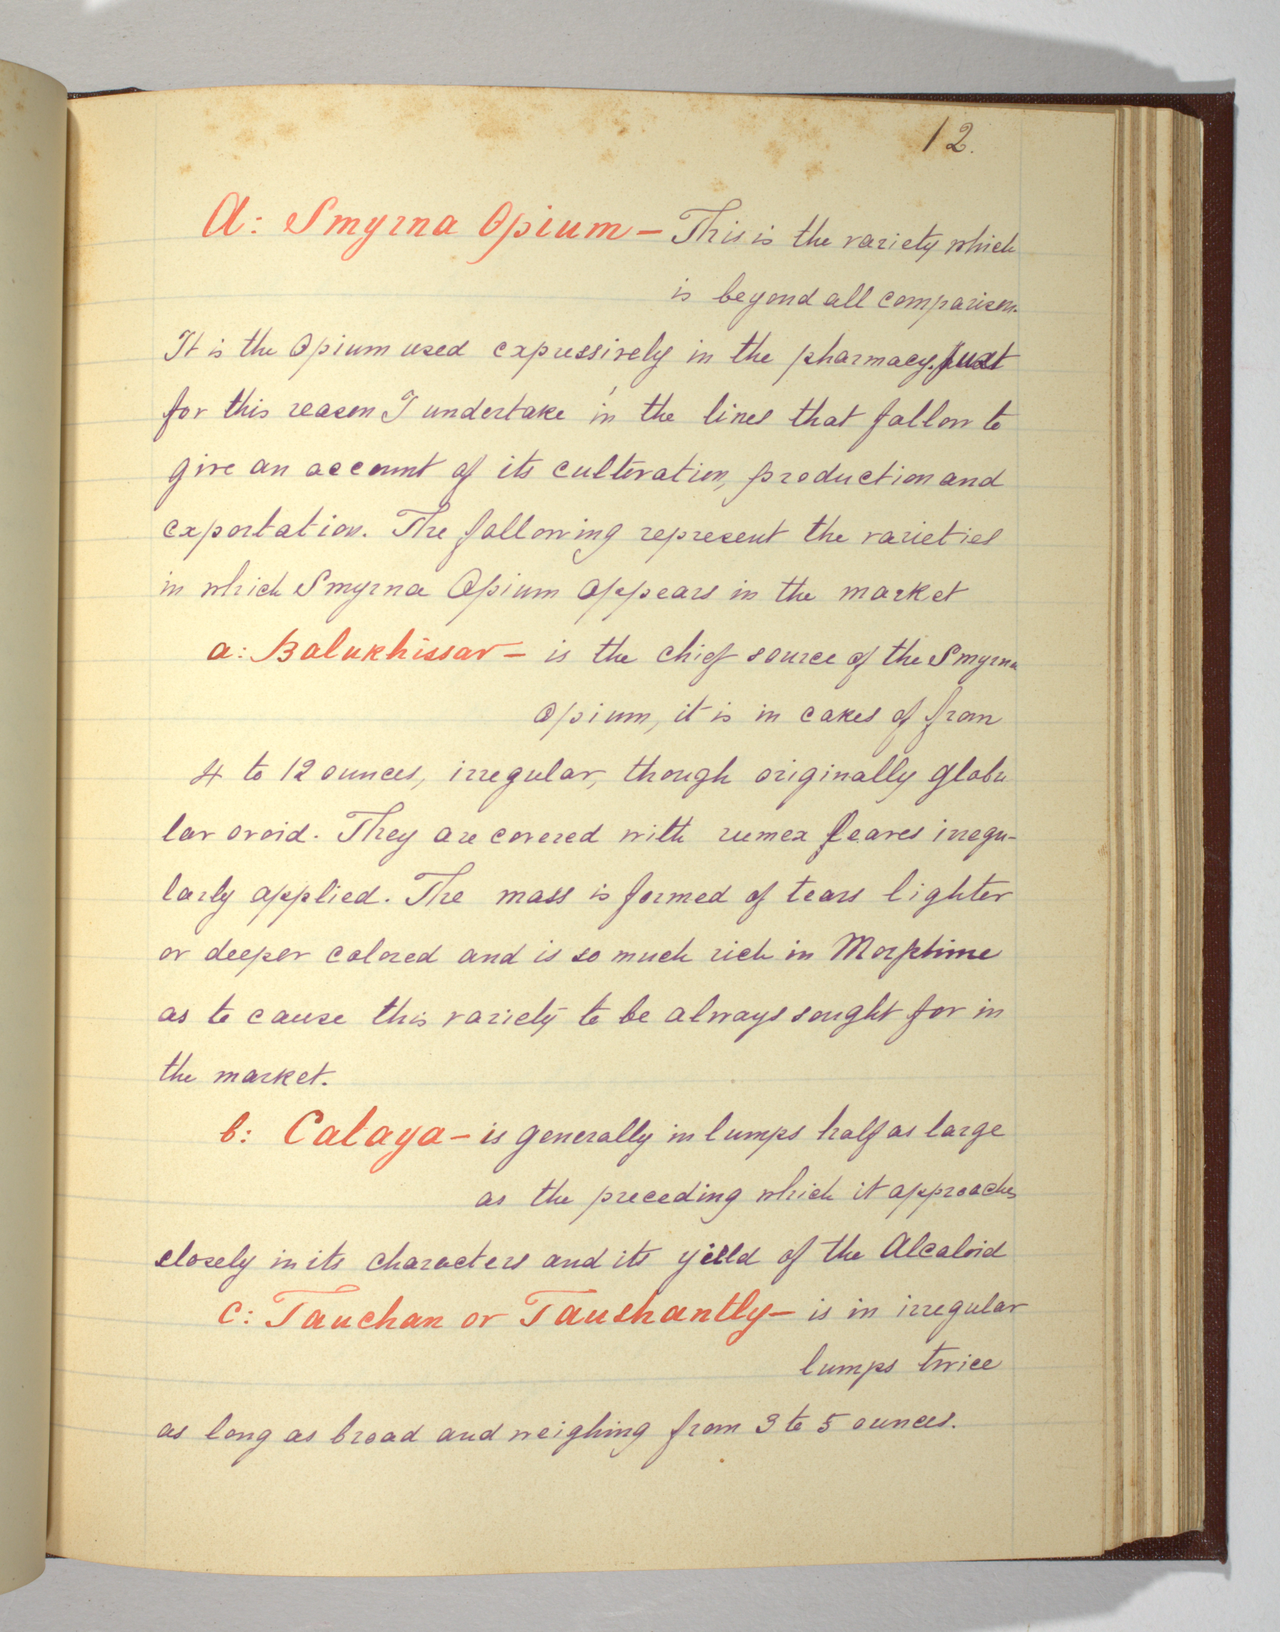 12.
A: Smyrna Opium – This is the variety which
is beyond all comparison.
It is the Opium used expressively in the pharmacy. Just
for this reason I undertake in the lines that follow to
give an account of its cultivation, production and
exportation. The following represent the varieties
in which Smyrna Opium appears in the market
a: Balukhissar – is the chief source of the Smyrna
Opium, it is in cakes of from
4 to 12 ounces, irregular, though originally globu
lar ovoid. They are covered with rumex leaves irregu-
larly applied. The mass is formed of tears lighter
or deeper colored and is so much rich in Morphine
as to cause this variety to be always sought for in
the market.
b: Cataya – is generally in lumps half as large
as the preceding which it approaches
closely in its characters and its yield of the Alcaloid
c: Tauchan or Taushantly – is in irregular
lumps twice
as long as broad and weighing from 3 to 5 ounces.